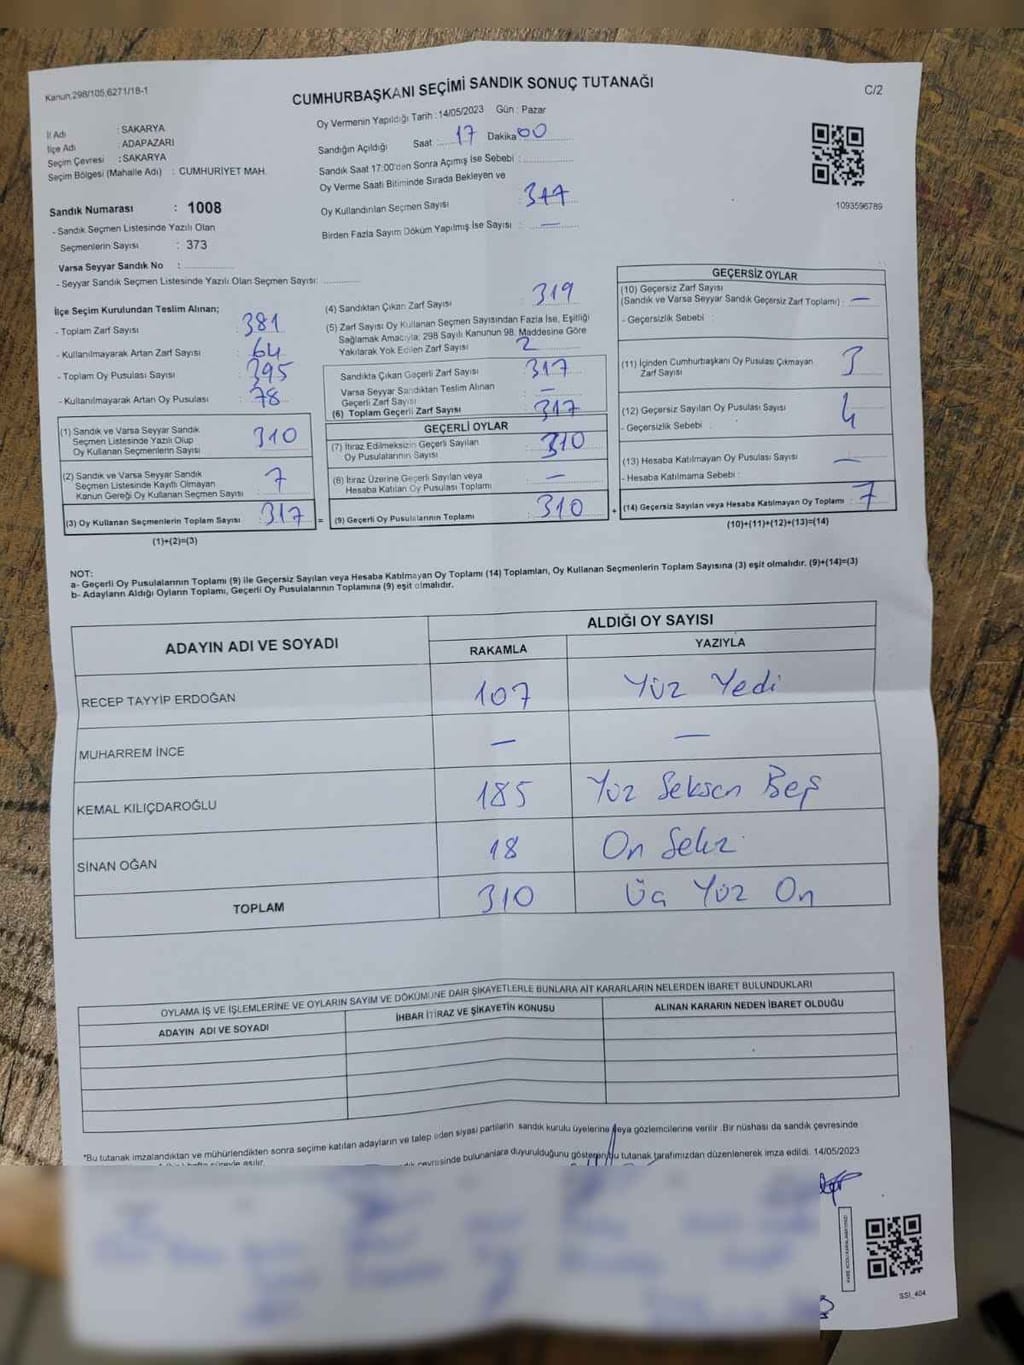 Kanun,298/105,6271/18-1
CUMHURBAŞKANI SEÇİMİ SANDIK SONUÇ TUTANAĞI
C/2
İl Adı : SAKARYA
İlçe Adı : ADAPAZARI
Seçim Çevresi : SAKARYA
Seçim Bölgesi (Mahalle Adı) : CUMHURİYET MAH.
Sandık Numarası : 1008
- Sandık Seçmen Listesinde Yazılı Olan
Seçmenlerin Sayısı : 373
Varsa Seyyar Sandık No :
- Seyyar Sandık Seçmen Listesinde Yazılı Olan Seçmen Sayısı:
Oy Vermenin Yapıldığı Tarih : 14/05/2023 Gün : Pazar
Sandığın Açıldığı Saat 17 Dakika 00
Sandık Saat 17:00'den Sonra Açımış İse Sebebi :
Oy Verme Saati Bitiminde Sırada Bekleyen ve
Oy Kullandırılan Seçmen Sayısı 317
Birden Fazla Sayım Döküm Yapılmış İse Sayısı : —
1093596789
İlçe Seçim Kurulundan Teslim Alınan;
- Toplam Zarf Sayısı : 381
- Kullanılmayarak Artan Zarf Sayısı : 64
- Toplam Oy Pusulası Sayısı : 395
- Kullanılmayarak Artan Oy Pusulası : 78
(1) Sandık ve Varsa Seyyar Sandık
Seçmen Listesinde Yazılı Olup
Oy Kullanan Seçmenlerin Sayısı : 310
(2) Sandık ve Varsa Seyyar Sandık
Seçmen Listesinde Kayıtlı Olmayan
Kanun Gereği Oy Kullanan Seçmen Sayısı : 7
(3) Oy Kullanan Seçmenlerin Toplam Sayısı : 317
(1)+(2)=(3)
(4) Sandıktan Çıkan Zarf Sayısı 319
(5) Zarf Sayısı Oy Kullanan Seçmen Sayısından Fazla İse, Eşitliği
Sağlamak Amacıyla; 298 Sayılı Kanunun 98. Maddesine Göre
Yakılarak Yok Edilen Zarf Sayısı 2
Sandıkta Çıkan Geçerli Zarf Sayısı : 317
Varsa Seyyar Sandıktan Teslim Alınan
Geçerli Zarf Sayısı —
(6) Toplam Geçerli Zarf Sayısı : 317
GEÇERLİ OYLAR
(7) İtiraz Edilmeksizin Geçerli Sayılan
Oy Pusulalarının Sayısı 310
(8) İtiraz Üzerine Geçerli Sayılan veya
Hesaba Katılan Oy Pusulası Toplamı —
= (9) Geçerli Oy Pusulalarının Toplamı : 310
GEÇERSİZ OYLAR
(10) Geçersiz Zarf Sayısı
(Sandık ve Varsa Seyyar Sandık Geçersiz Zarf Toplamı) : —
- Geçersizlik Sebebi :
(11) İçinden Cumhurbaşkanı Oy Pusulası Çıkmayan
Zarf Sayısı 3
(12) Geçersiz Sayılan Oy Pusulası Sayısı : 4
- Geçersizlik Sebebi :
(13) Hesaba Katılmayan Oy Pusulası Sayısı : —
- Hesaba Katılmama Sebebi :
+ (14) Geçersiz Sayılan veya Hesaba Katılmayan Oy Toplamı : 7
(10)+(11)+(12)+(13)=(14)
NOT:
a- Geçerli Oy Pusulalarının Toplamı (9) ile Geçersiz Sayılan veya Hesaba Katılmayan Oy Toplamı (14) Toplamları, Oy Kullanan Seçmenlerin Toplam Sayısına (3) eşit olmalıdır. (9)+(14)=(3)
b- Adayların Aldığı Oyların Toplamı, Geçerli Oy Pusulalarının Toplamına (9) eşit olmalıdır.
ADAYIN ADI VE SOYADI
ALDIĞI OY SAYISI
RAKAMLA YAZIYLA
RECEP TAYYİP ERDOĞAN 107 Yüz Yedi
MUHARREM İNCE — —
KEMAL KILIÇDAROĞLU 185 Yüz Seksen Beş
SİNAN OĞAN 18 On Sekiz
TOPLAM 310 Üç Yüz On
OYLAMA İŞ VE İŞLEMLERİNE VE OYLARIN SAYIM VE DÖKÜMÜNE DAİR ŞİKAYETLERLE BUNLARA AİT KARARLARIN NELERDEN İBARET BULUNDUKLARI
ADAYIN ADI VE SOYADI İHBAR İTİRAZ VE ŞİKAYETİN KONUSU ALINAN KARARIN NEDEN İBARET OLDUĞU
*Bu tutanak imzalandıktan ve mühürlendikten sonra seçime katılan adayların ve talep eden siyasi partilerin sandık kurulu üyelerine veya gözlemcilerine verilir .Bir nüshası da sandık çevresinde
bulunanlara duyurulduğunu gösteren bu tutanak tarafımızdan düzenlenerek imza edildi. 14/05/2023
SSI_404